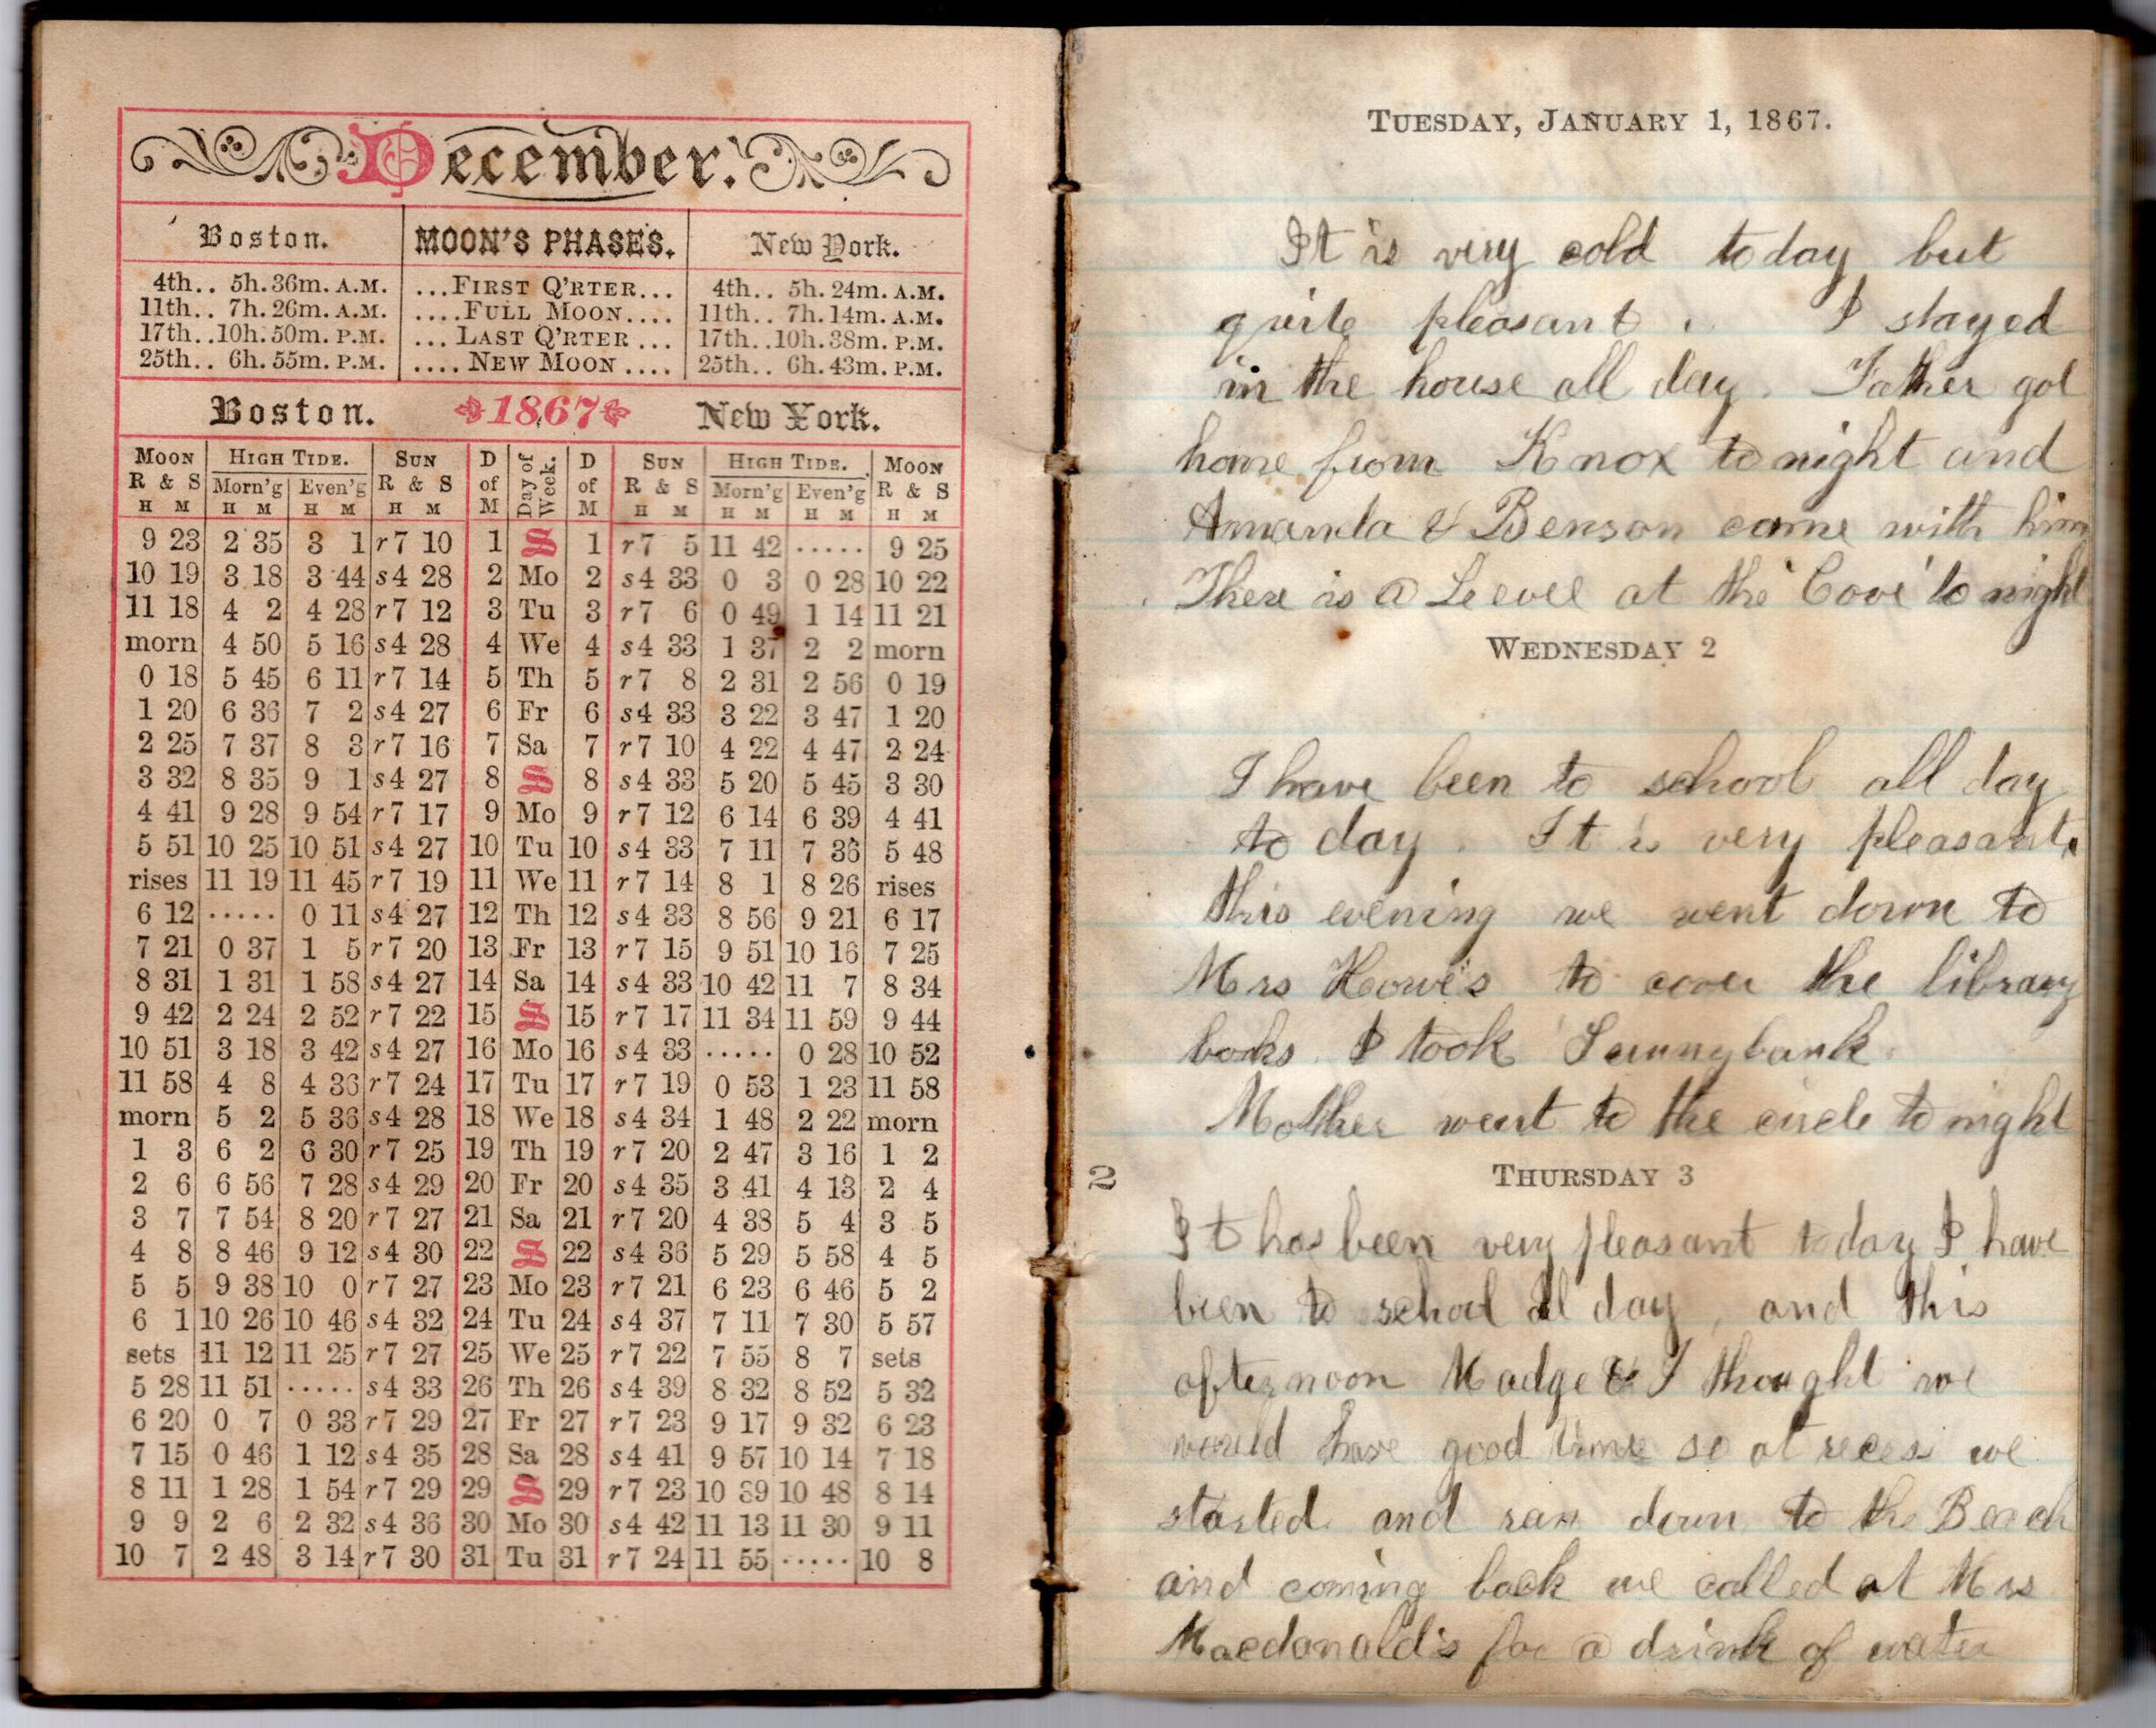 December.
Boston. MOON'S PHASES. New York.
4th.. 5h. 36m. A.M. ...FIRST Q'RTER... 4th.. 5h. 24m. A.M.
11th.. 7h. 26m. A.M. ....FULL MOON.... 11th.. 7h. 14m. A.M.
17th..10h. 50m. P.M. ...LAST Q'RTER... 17th..10h. 38m. P.M.
25th.. 6h. 55m. P.M. ....NEW MOON.... 25th.. 6h. 43m. P.M.
Boston. 1867 New York.
MOON HIGH TIDE. SUN D Day of Week. D SUN HIGH TIDE. MOON
R & S Morn'g Even'g R & S of of R & S Morn'g Even'g R & S
H M H M H M H M M M H M H M H M H M
9 23 2 35 3 1 r7 10 1 S 1 r7 5 11 42 ..... 9 25
10 19 3 18 3 44 s4 28 2 Mo 2 s4 33 0 3 0 28 10 22
11 18 4 2 4 28 r7 12 3 Tu 3 r7 6 0 49 1 14 11 21
morn 4 50 5 16 s4 28 4 We 4 s4 33 1 37 2 2 morn
0 18 5 45 6 11 r7 14 5 Th 5 r7 8 2 31 2 56 0 19
1 20 6 36 7 2 s4 27 6 Fr 6 s4 33 3 22 3 47 1 20
2 25 7 37 8 3 r7 16 7 Sa 7 r7 10 4 22 4 47 2 24
3 32 8 35 9 1 s4 27 8 S 8 s4 33 5 20 5 45 3 30
4 41 9 28 9 54 r7 17 9 Mo 9 r7 12 6 14 6 39 4 41
5 51 10 25 10 51 s4 27 10 Tu 10 s4 33 7 11 7 36 5 48
rises 11 19 11 45 r7 19 11 We 11 r7 14 8 1 8 26 rises
6 12 ..... 0 11 s4 27 12 Th 12 s4 33 8 56 9 21 6 17
7 21 0 37 1 5 r7 20 13 Fr 13 r7 15 9 51 10 16 7 25
8 31 1 31 1 58 s4 27 14 Sa 14 s4 33 10 42 11 7 8 34
9 42 2 24 2 52 r7 22 15 S 15 r7 17 11 34 11 59 9 44
10 51 3 18 3 42 s4 27 16 Mo 16 s4 33 ..... 0 28 10 52
11 58 4 8 4 36 r7 24 17 Tu 17 r7 19 0 53 1 23 11 58
morn 5 2 5 36 s4 28 18 We 18 s4 34 1 48 2 22 morn
1 3 6 2 6 30 r7 25 19 Th 19 r7 20 2 47 3 16 1 2
2 6 6 56 7 28 s4 29 20 Fr 20 s4 35 3 41 4 13 2 4
3 7 7 54 8 20 r7 27 21 Sa 21 r7 20 4 38 5 4 3 5
4 8 8 46 9 12 s4 30 22 S 22 s4 36 5 29 5 58 4 5
5 5 9 38 10 0 r7 27 23 Mo 23 r7 21 6 23 6 46 5 2
6 1 10 26 10 46 s4 32 24 Tu 24 s4 37 7 11 7 30 5 57
sets 11 12 11 25 r7 27 25 We 25 r7 22 7 55 8 7 sets
5 28 11 51 ..... s4 33 26 Th 26 s4 39 8 32 8 52 5 32
6 20 0 7 0 33 r7 29 27 Fr 27 r7 23 9 17 9 32 6 23
7 15 0 46 1 12 s4 35 28 Sa 28 s4 41 9 57 10 14 7 18
8 11 1 28 1 54 r7 29 29 S 29 r7 23 10 39 10 48 8 14
9 9 2 6 2 32 s4 36 30 Mo 30 s4 42 11 13 11 30 9 11
10 7 2 48 3 14 r7 30 31 Tu 31 r7 24 11 55 ..... 10 8
TUESDAY, JANUARY 1, 1867.
It is very cold to day but
quite pleasant. I stayed
in the house all day. Father got
home from Knox to night and
Amanda & Benson came with him
There is a Leevee at the Cove to night
WEDNESDAY 2
I have been to school all day
to day. It is very pleasant.
this evening we went down to
Mrs Howe's to cover the library
books. I took Sunnybank
Mother went to the circle to night
2 THURSDAY 3
It has been very pleasant to day I have
been to school all day, and this
afternoon Madge & I thought we
would have good time so at reces we
started and ran down to the Beach
and coming back we called at Mrs
Macdonald's for a drink of water